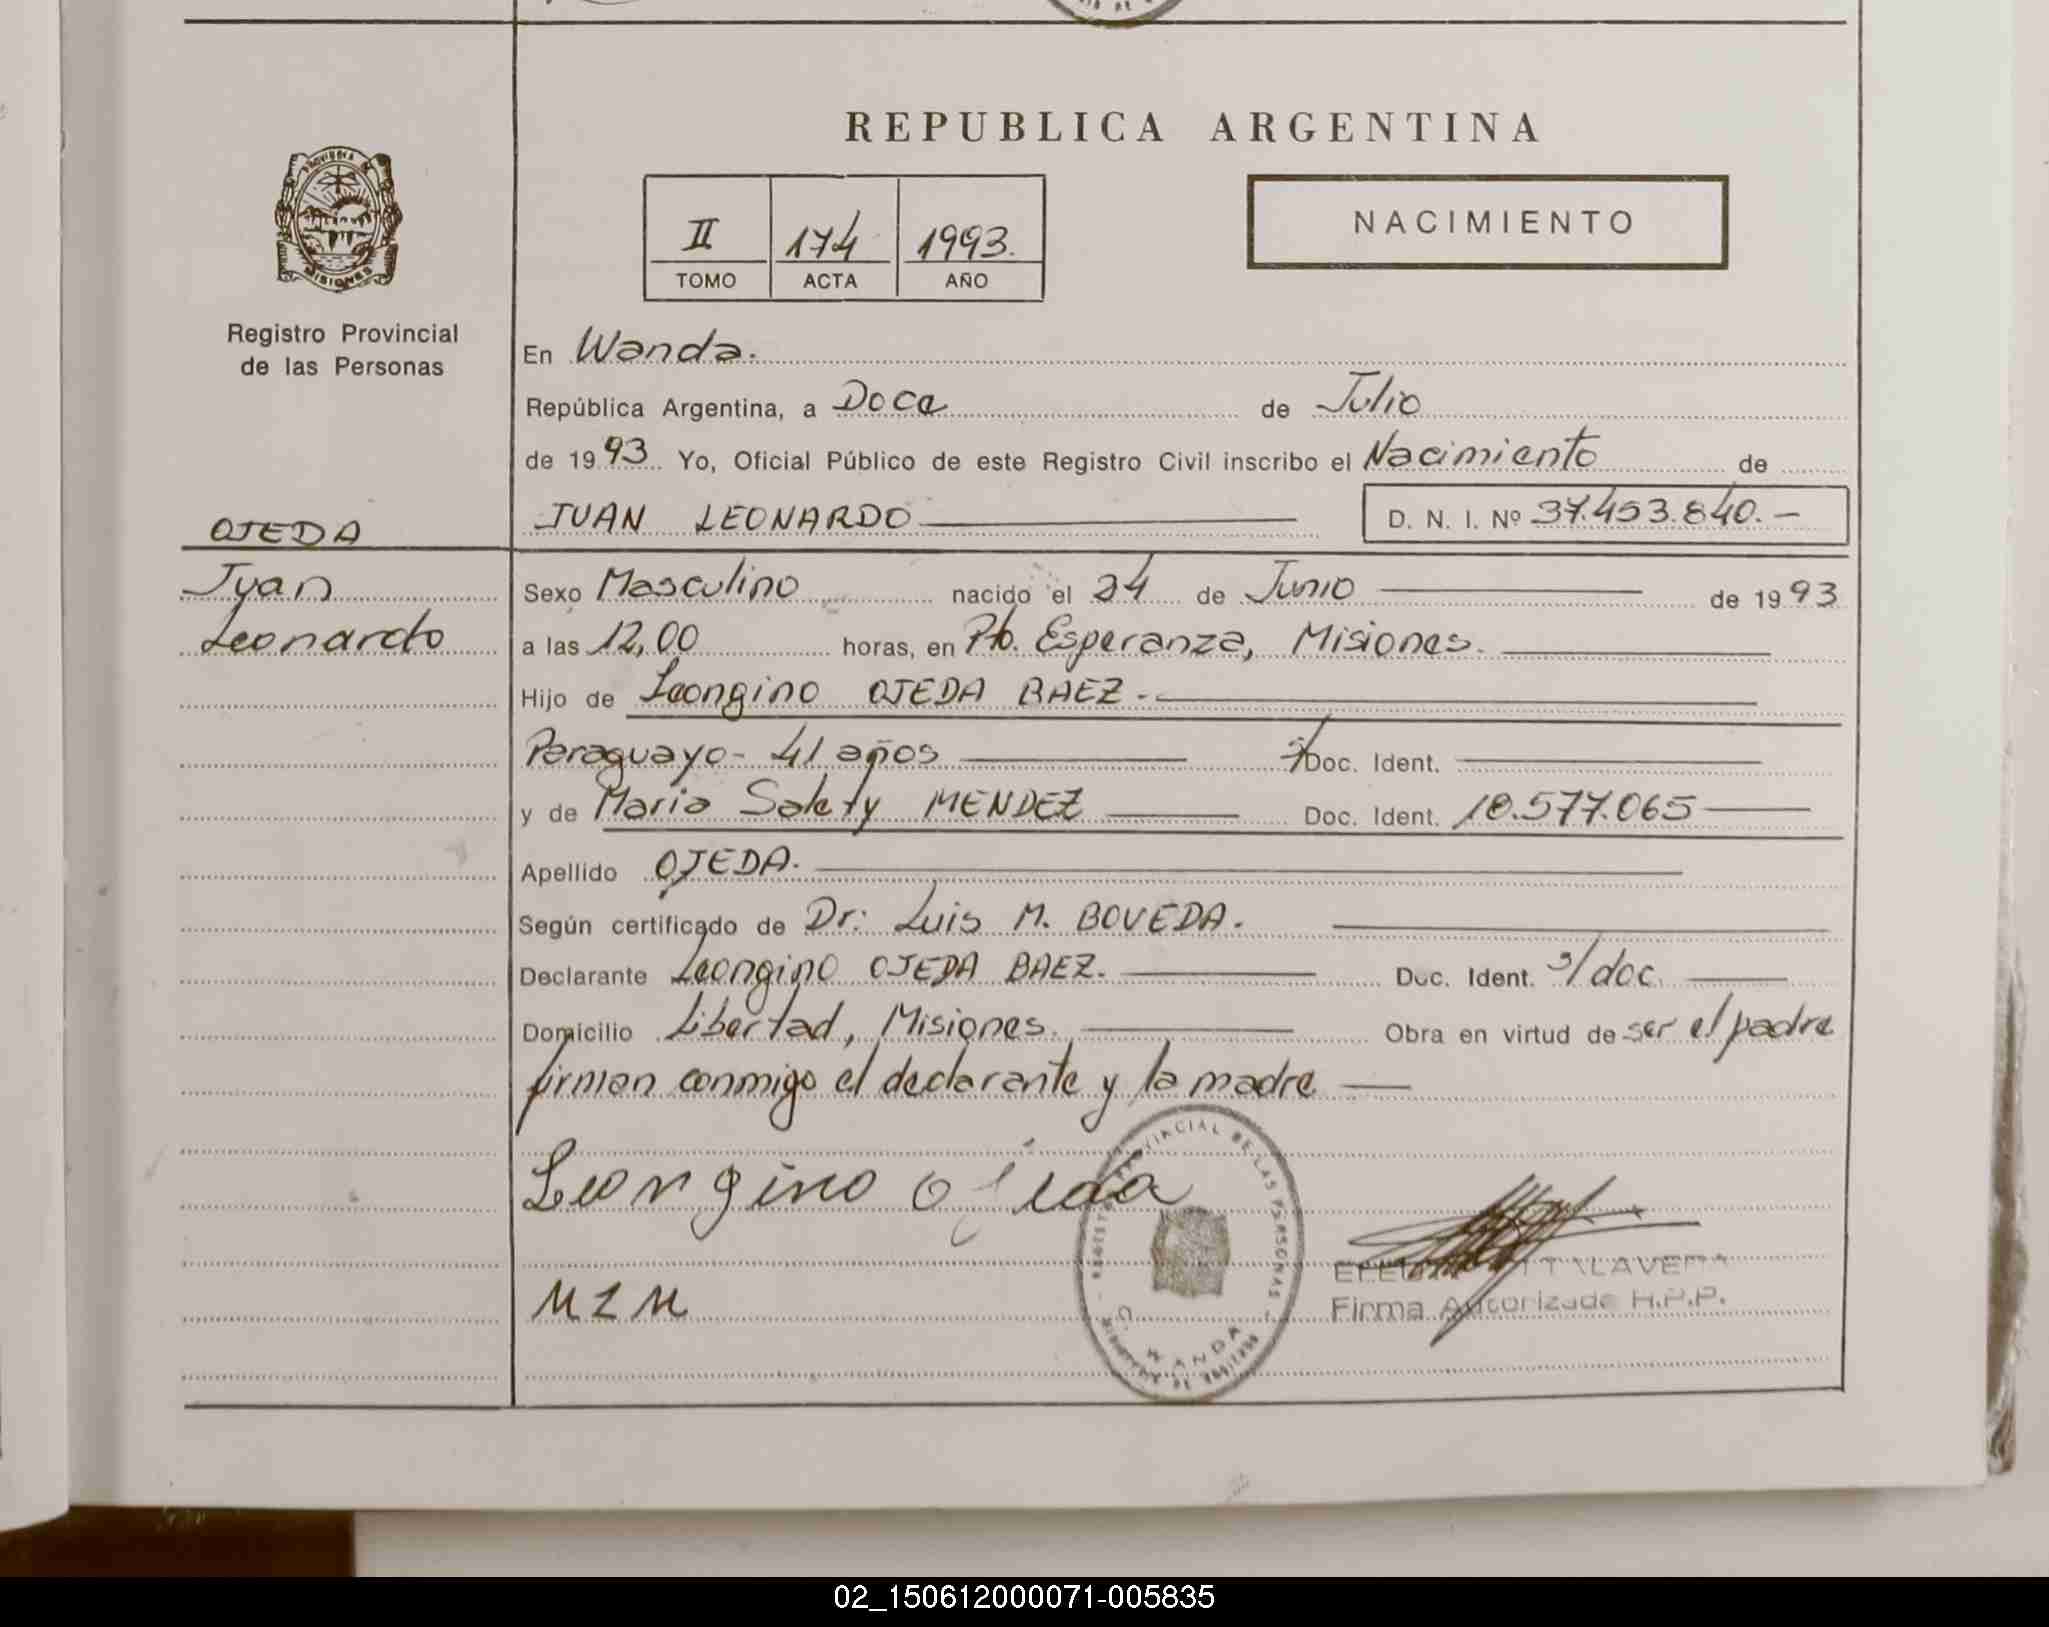 REPUBLICA ARGENTINA
PROVINCIA DE
MISIONES
Registro Provincial
de las Personas
II 174 1993.
TOMO ACTA AÑO
NACIMIENTO
En Wanda.
República Argentina, a Doce de Julio
de 1993 Yo, Oficial Público de este Registro Civil inscribo el Nacimiento de
JUAN LEONARDO D. N. I. Nº 37.453.840.-
OJEDA
Juan
Leonardo
Sexo Masculino nacido el 24 de Junio de 1993
a las 12,00 horas, en Pto. Esperanza, Misiones.
Hijo de Leongino OJEDA BAEZ.-
Paraguayo- 41 años s/Doc. Ident.
y de Maria Salety MENDEZ Doc. Ident. 18.577.065
Apellido OJEDA.
Según certificado de Dr: Luis M. BOVEDA.
Declarante Leongino OJEDA BAEZ. Doc. Ident. s/doc.
Domicilio Libertad, Misiones. Obra en virtud de ser el padre
firman conmigo el declarante y la madre
Leongino ojeda
REGISTRO PROVINCIAL DE LAS PERSONAS
WANDA
TALAVERA
Firma Autorizada H.P.P.
M Z M
02_150612000071-005835